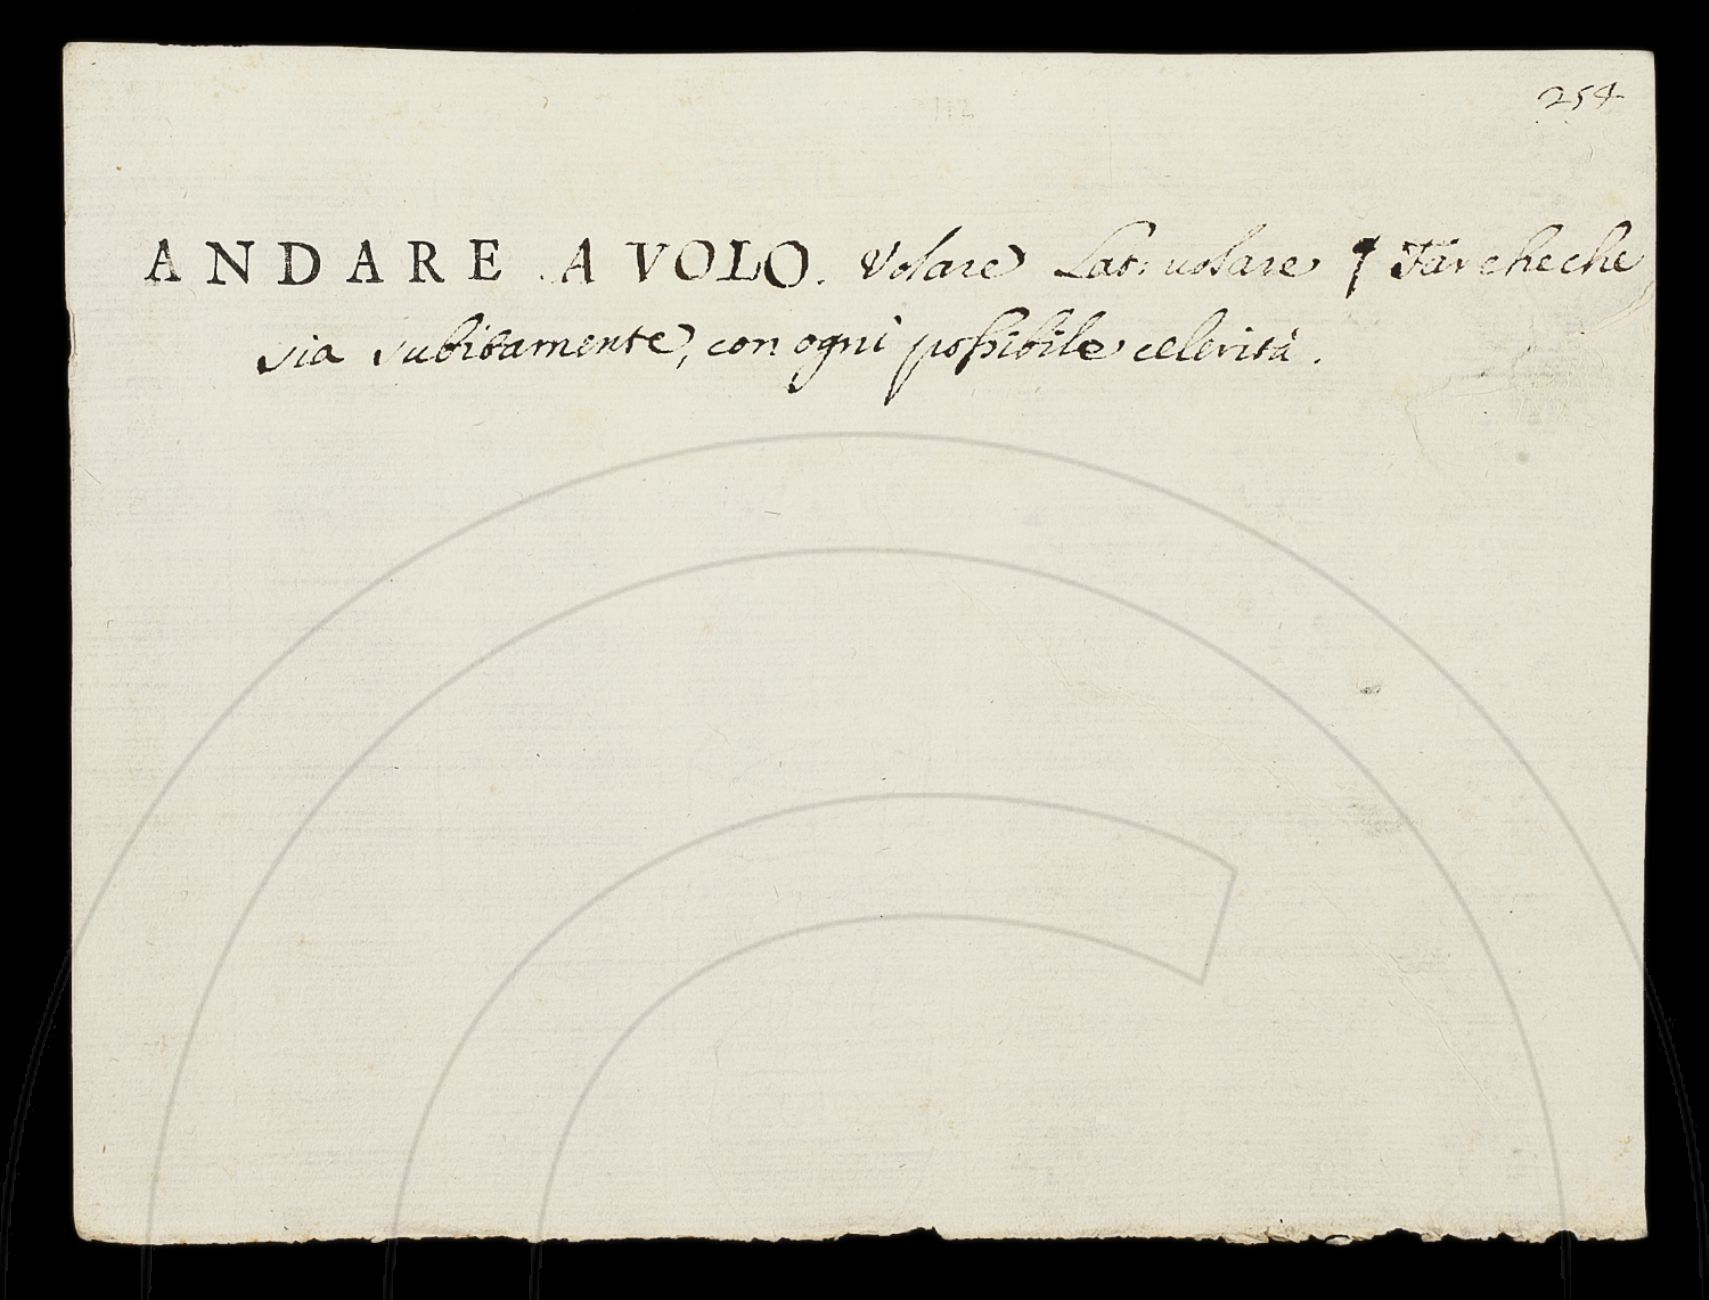 254
112
ANDARE A VOLO. Volare Lat: uolare ¶ Far checche
sia subitamente, con ogni possibile celerità.